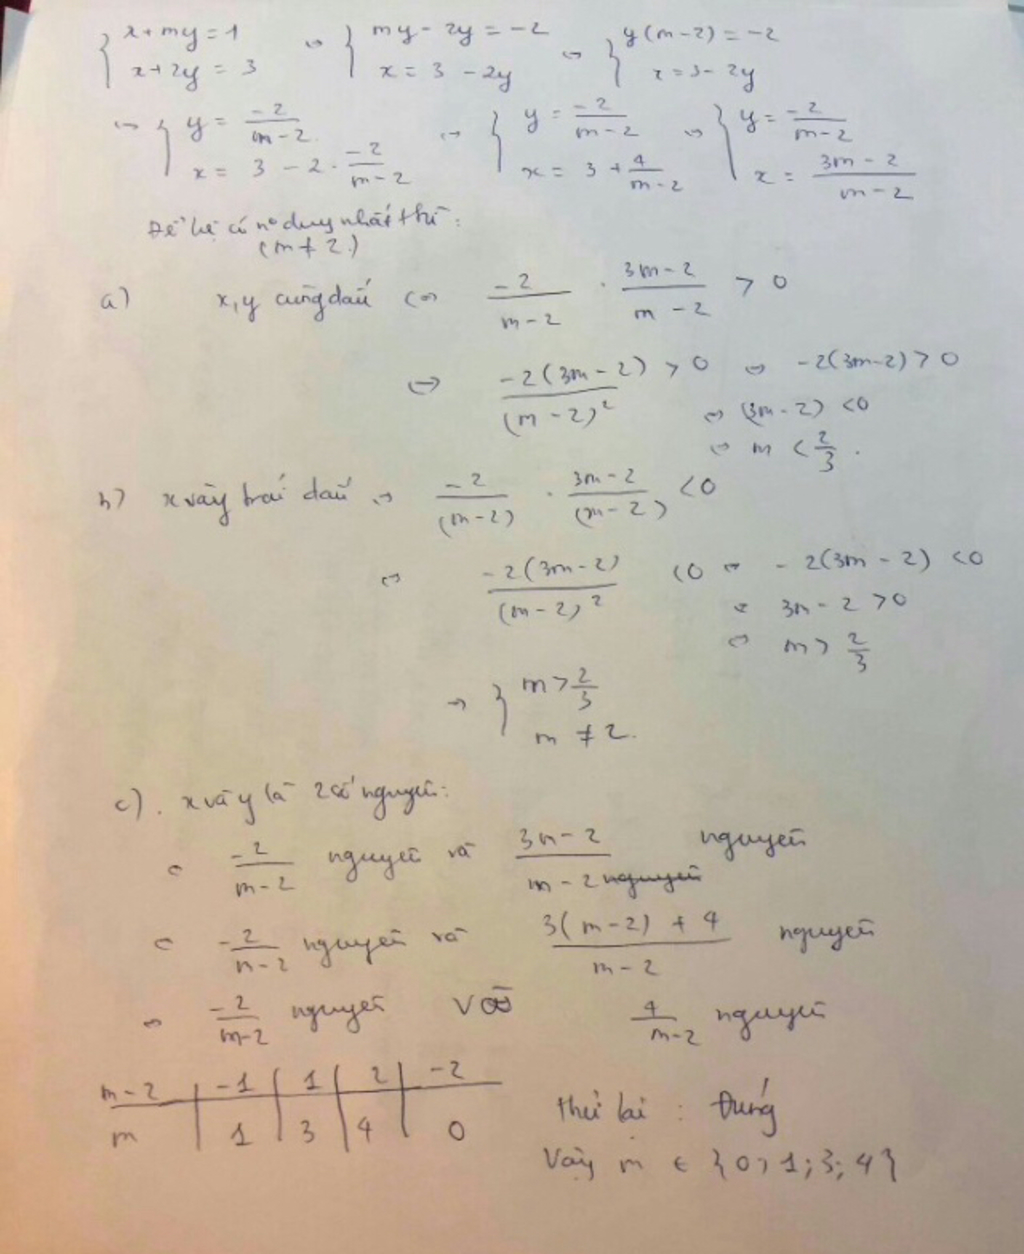 { x + my = 1 ⇔ { my - 2y = -2 ⇔ { y(m-2) = -2
x + 2y = 3 x = 3 - 2y x = 3 - 2y
⇔ { y = -2/(m-2) ⇔ { y = -2/(m-2) ⇔ { y = -2/(m-2)
x = 3 - 2 . -2/(m-2) x = 3 + 4/(m-2) x = (3m-2)/(m-2)
Để hệ có n° duy nhất thì:
(m ≠ 2)
a) x, y cùng dấu ⇔ -2/(m-2) . (3m-2)/(m-2) > 0
⇔ -2(3m-2)/(m-2)² > 0 ⇔ -2(3m-2) > 0
⇔ (3m-2) < 0
⇔ m < 2/3 .
b) x và y trái dấu ⇔ -2/(m-2) . (3m-2)/(m-2) < 0
⇔ -2(3m-2)/(m-2)² < 0 ⇔ -2(3m-2) < 0
⇔ 3m - 2 > 0
⇔ m > 2/3
→ { m > 2/3
m ≠ 2.
c). x và y là 2 số nguyên:
⇔ -2/(m-2) nguyên và (3m-2)/(m-2) nguyên
⇔ -2/(m-2) nguyên và (3(m-2) + 4)/(m-2) nguyên
⇔ -2/(m-2) nguyên và 4/(m-2) nguyên
m-2 | -1 | 1 | 2 | -2
m | 1 | 3 | 4 | 0
thử lại : Đúng
Vậy m ∈ {0; 1; 3; 4}